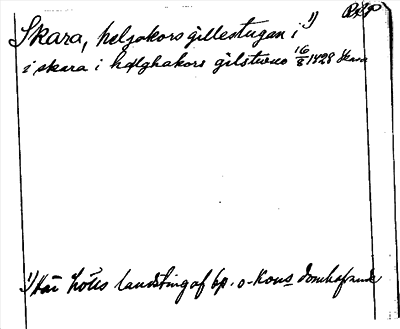 Skara, helgakorsgillestugan i ¹)
i skara i hælghakors gilstuwo 16/8 1428 Skara
¹) Här hölls landsting af bp. o. Kons domhafvande